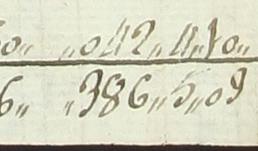 0„ „042„4„10„
6„ „386„5„09